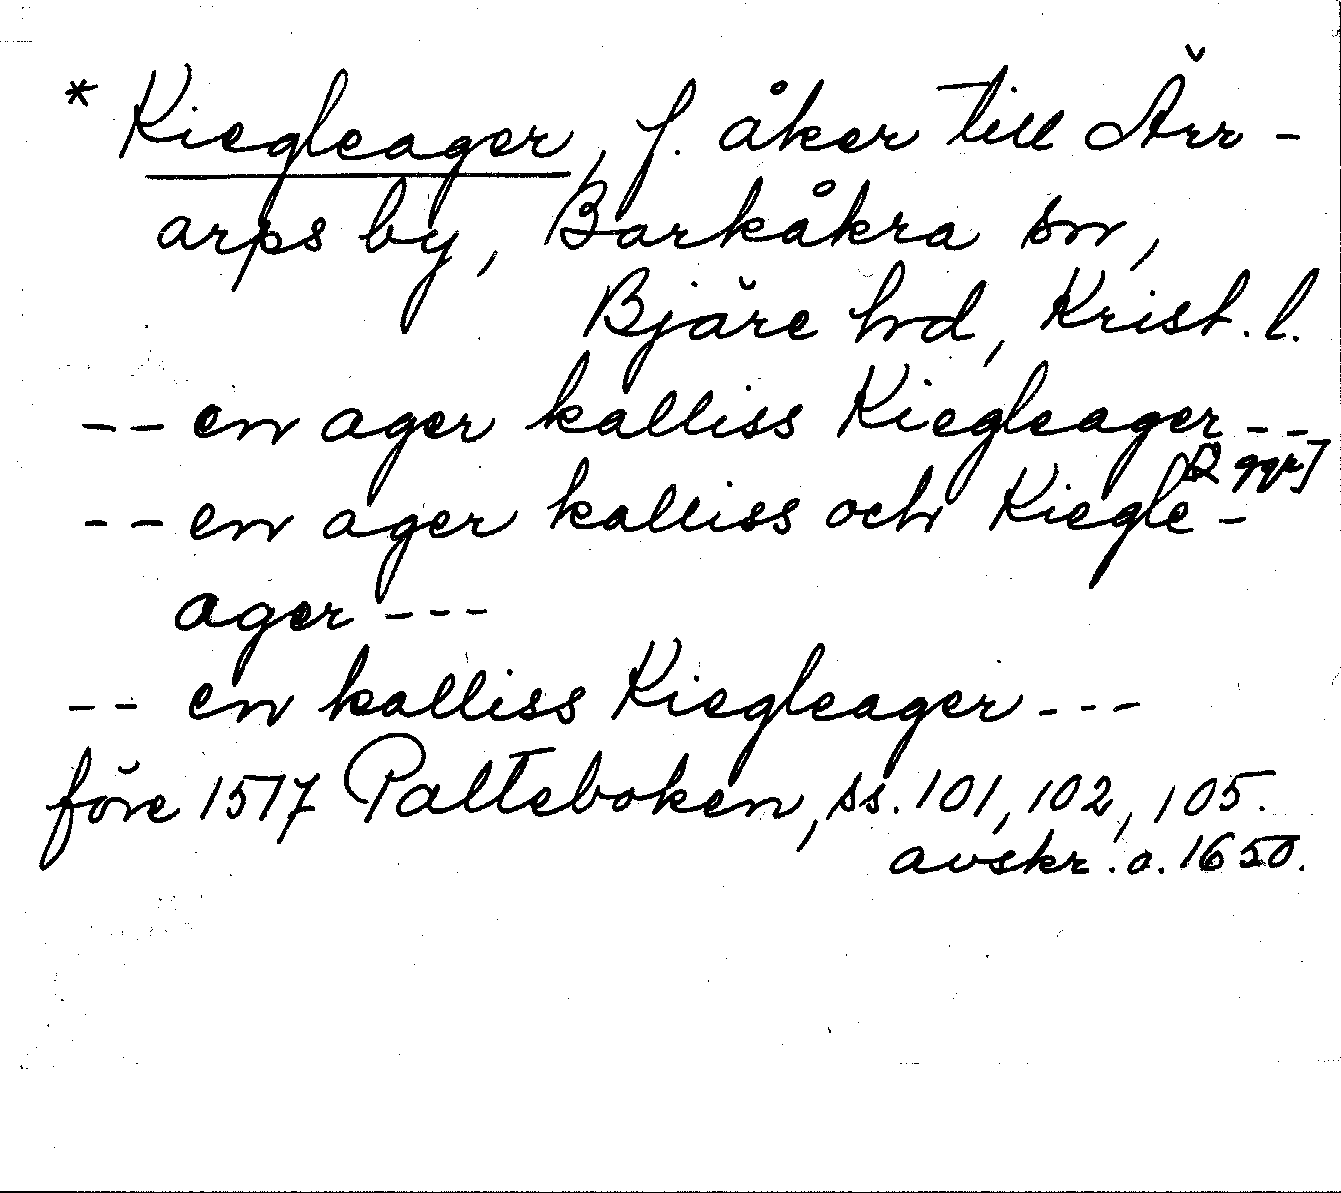 * Kiegleager, f. åker till Ärr-
arps by, Barkåkra sn,
Bjäre hd, Krist. l.
-- en ager kalliss Kiegleager --
[2 ggr]
-- en ager kalliss och Kiegle-
ager ---
-- en kalliss Kiegleager ---
före 1517 Palteboken, ss. 101, 102, 105.
avskr. o. 1650.